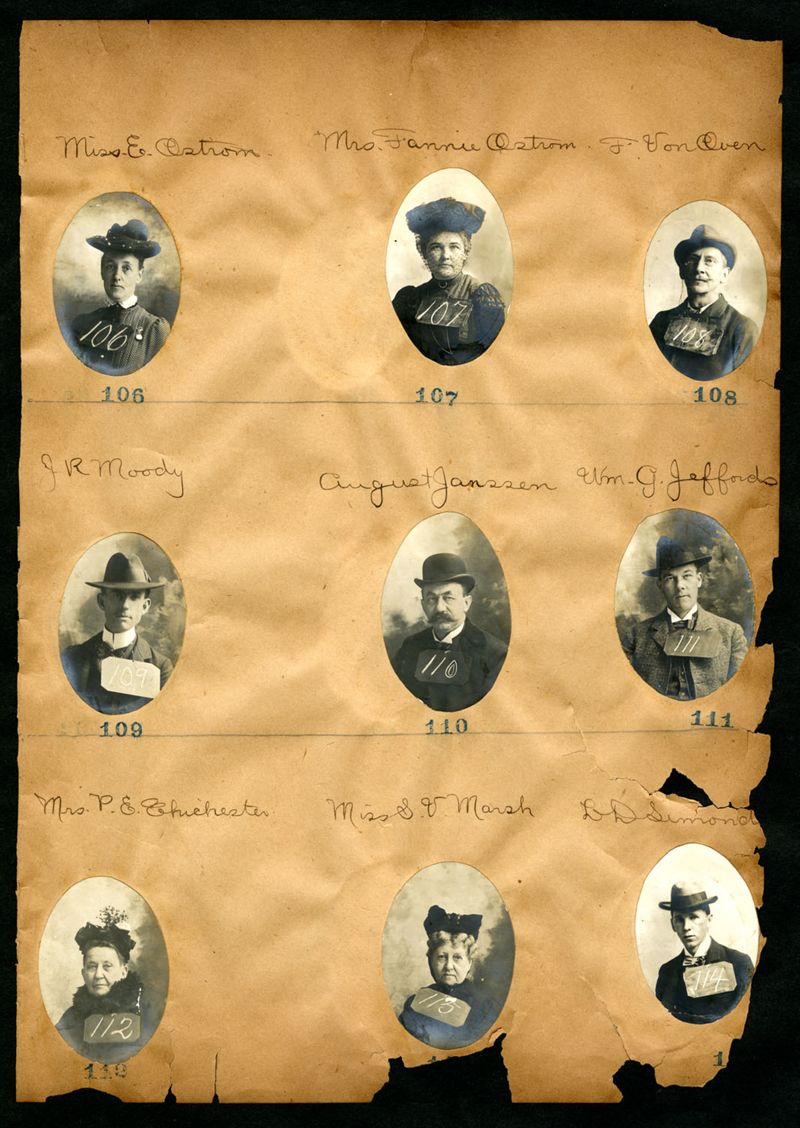 Miss. E. Ostrom.
Mrs. Fannie Ostrom.
F Von Oven
106
107
108
106
107
108
J R Moody
August Janssen
Wm. G. Jeffords
109
110
111
109
110
111
Mrs. P. E. Chichester
Miss S. V. Marsh
D Simond
112
113
114
112
1